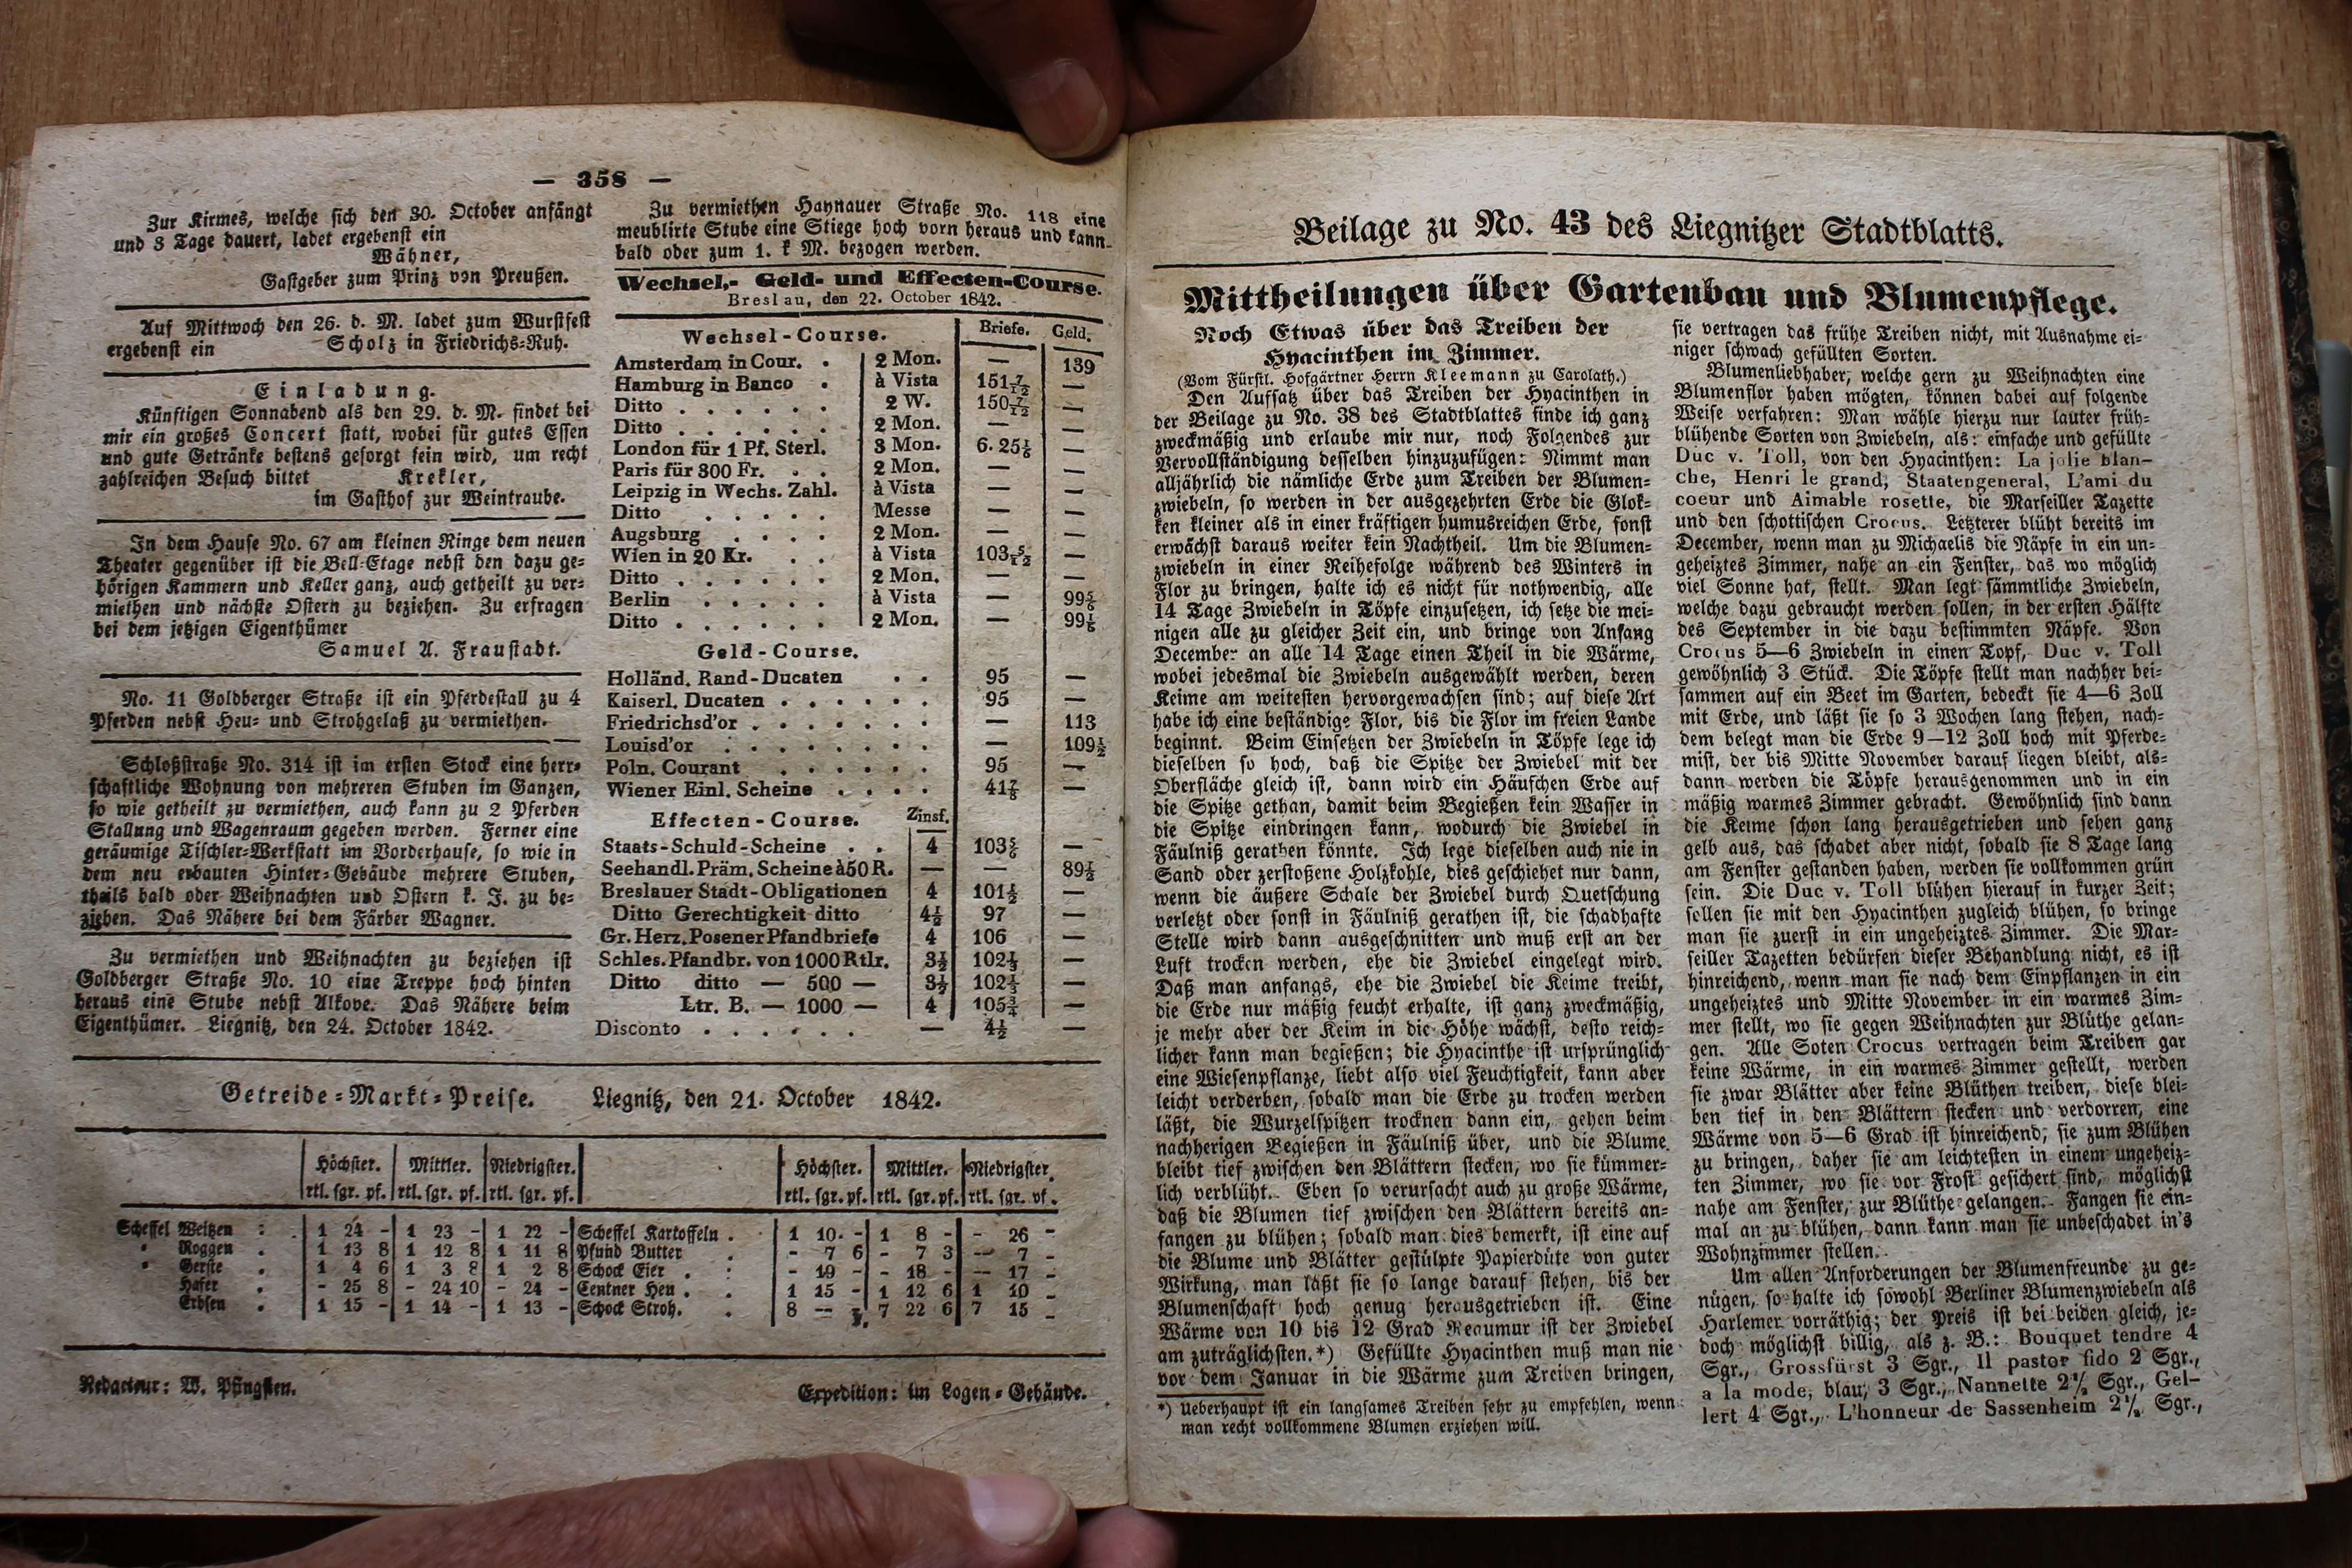 — 358 —
Zur Kirmes, welche sich den 30. October anfängt
und 3 Tage dauert, ladet ergebenst ein
Wähner,
Gastgeber zum Prinz von Preußen.
Auf Mittwoch den 26. d. M. ladet zum Wurstfest
ergebenst ein Scholz in Friedrichs-Ruh.
Einladung.
Künftigen Sonnabend als den 29. d. M. findet bei
mir ein großes Concert statt, wobei für gutes Essen
und gute Getränke bestens gesorgt sein wird, um recht
zahlreichen Besuch bittet Krekler,
im Gasthof zur Weintraube.
In dem Hause No. 67 am kleinen Ringe dem neuen
Theater gegenüber ist die Bell-Etage nebst den dazu ge-
hörigen Kammern und Keller ganz, auch getheilt zu ver-
miethen und nächste Ostern zu beziehen. Zu erfragen
bei dem jetzigen Eigenthümer
Samuel A. Fraustadt.
No. 11 Goldberger Straße ist ein Pferdestall zu 4
Pferden nebst Heu- und Strohgelaß zu vermiethen.
Schloßstraße No. 314 ist im ersten Stock eine herr-
schaftliche Wohnung von mehreren Stuben im Ganzen,
so wie getheilt zu vermiethen, auch kann zu 2 Pferden
Stallung und Wagenraum gegeben werden. Ferner eine
geräumige Tischler-Werkstatt im Vorderhause, so wie in
dem neu erbauten Hinter-Gebäude mehrere Stuben,
theils bald oder Weihnachten und Ostern k. J. zu be-
ziehen. Das Nähere bei dem Färber Wagner.
Zu vermiethen und Weihnachten zu beziehen ist
Goldberger Straße No. 10 eine Treppe hoch hinten
heraus eine Stube nebst Alkove. Das Nähere beim
Eigenthümer. Liegnitz, den 24. October 1842.
Zu vermiethen Haynauer Straße No. 118 eine
meublirte Stube eine Stiege hoch vorn heraus und kann
bald oder zum 1. k M. bezogen werden.
Wechsel,- Geld- und Effecten-Course.
Breslau, den 22. October 1842.
Wechsel-Course. Briefe. Geld.
Amsterdam in Cour. . 2 Mon. — 139
Hamburg in Banco . à Vista 151 7/12 —
Ditto . . . . . . 2 W. 150 7/12 —
Ditto . . . . . . 2 Mon. — —
London für 1 Pf. Sterl. 3 Mon. 6. 25 1/6 —
Paris für 300 Fr. . . 2 Mon. — —
Leipzig in Wechs. Zahl. à Vista — —
Ditto . . . . . Messe — —
Augsburg . . . . 2 Mon. — —
Wien in 20 Kr. . . à Vista 103 5/12 —
Ditto . . . . . . 2 Mon. — —
Berlin . . . . . à Vista — 99 5/6
Ditto . . . . . . 2 Mon. — 99 1/6
Geld-Course.
Holländ. Rand-Ducaten . . 95 —
Kaiserl. Ducaten . . . . . . 95 —
Friedrichsd'or . . . . . . . — 113
Louisd'or . . . . . . . . — 109 1/2
Poln. Courant . . . . . . 95 —
Wiener Einl. Scheine . . . . 41 7/8 —
Effecten-Course. Zinsf.
Staats-Schuld-Scheine . . 4 103 5/6 —
Seehandl. Präm. Scheine à 50 R. — — 89 1/2
Breslauer Stadt-Obligationen 4 101 1/2 —
Ditto Gerechtigkeit ditto 4 1/2 97 —
Gr. Herz. Posener Pfandbriefe 4 106 —
Schles. Pfandbr. von 1000 Rtlr. 3 1/2 102 1/3 —
Ditto ditto — 500 — 3 1/2 102 1/3 —
Ltr. B. — 1000 — 4 105 3/4 —
Disconto . . . . . . — 4 1/2 —
Getreide-Markt-Preise. Liegnitz, den 21. October 1842.
Höchster. Mittler. Niedrigster. Höchster. Mittler. Niedrigster.
rtl. sgr. pf. rtl. sgr. pf. rtl. sgr. pf. rtl. sgr. pf. rtl. sgr. pf. rtl. sgr. pf.
Scheffel Weitzen : . 1 24 - 1 23 - 1 22 - Scheffel Kartoffeln . 1 10 - 1 8 - - 26 -
" Roggen . 1 13 8 1 12 8 1 11 8 Pfund Butter . - 7 6 - 7 3 - 7 -
" Gerste . 1 4 6 1 3 8 1 2 8 Schock Eier . : - 19 - - 18 - - 17 -
Hafer . - 25 8 - 24 10 - 24 - Centner Heu . . 1 15 - 1 12 6 1 10 -
Erbsen . 1 15 - 1 14 - 1 13 - Schock Stroh. . 8 — 7 22 6 7 15 -
Redacteur: W. Pfingsten. Expedition: im Logen-Gebäude.
Beilage zu No. 43 des Liegnitzer Stadtblatts.
Mittheilungen über Gartenbau und Blumenpflege.
Noch Etwas über das Treiben der
Hyacinthen im Zimmer.
(Vom Fürstl. Hofgärtner Herrn Kleemann zu Carolath.)
Den Aufsatz über das Treiben der Hyacinthen in
der Beilage zu No. 38 des Stadtblattes finde ich ganz
zweckmäßig und erlaube mir nur, noch Folgendes zur
Vervollständigung desselben hinzuzufügen: Nimmt man
alljährlich die nämliche Erde zum Treiben der Blumen-
zwiebeln, so werden in der ausgezehrten Erde die Glok-
ken kleiner als in einer kräftigen humusreichen Erde, sonst
erwächst daraus weiter kein Nachtheil. Um die Blumen-
zwiebeln in einer Reihefolge während des Winters in
Flor zu bringen, halte ich es nicht für nothwendig, alle
14 Tage Zwiebeln in Töpfe einzusetzen, ich setze die mei-
nigen alle zu gleicher Zeit ein, und bringe von Anfang
December an alle 14 Tage einen Theil in die Wärme,
wobei jedesmal die Zwiebeln ausgewählt werden, deren
Keime am weitesten hervorgewachsen sind; auf diese Art
habe ich eine beständige Flor, bis die Flor im freien Lande
beginnt. Beim Einsetzen der Zwiebeln in Töpfe lege ich
dieselben so hoch, daß die Spitze der Zwiebel mit der
Oberfläche gleich ist, dann wird ein Häufchen Erde auf
die Spitze gethan, damit beim Begießen kein Wasser in
die Spitze eindringen kann, wodurch die Zwiebel in
Fäulniß gerathen könnte. Ich lege dieselben auch nie in
Sand oder zerstoßene Holzkohle, dies geschiehet nur dann,
wenn die äußere Schale der Zwiebel durch Quetschung
verletzt oder sonst in Fäulniß gerathen ist, die schadhafte
Stelle wird dann ausgeschnitten und muß erst an der
Luft trocken werden, ehe die Zwiebel eingelegt wird.
Daß man anfangs, ehe die Zwiebel die Keime treibt,
die Erde nur mäßig feucht erhalte, ist ganz zweckmäßig,
je mehr aber der Keim in die Höhe wächst, desto reich-
licher kann man begießen; die Hyacinthe ist ursprünglich
eine Wiesenpflanze, liebt also viel Feuchtigkeit, kann aber
leicht verderben, sobald man die Erde zu trocken werden
läßt, die Wurzelspitzen trocknen dann ein, gehen beim
nachherigen Begießen in Fäulniß über, und die Blume
bleibt tief zwischen den Blättern stecken, wo sie kümmer-
lich verblüht. Eben so verursacht auch zu große Wärme,
daß die Blumen tief zwischen den Blättern bereits an-
fangen zu blühen; sobald man dies bemerkt, ist eine auf
die Blume und Blätter gestülpte Papierdüte von guter
Wirkung, man läßt sie so lange darauf stehen, bis der
Blumenschaft hoch genug herausgetrieben ist. Eine
Wärme von 10 bis 12 Grad Reaumur ist der Zwiebel
am zuträglichsten.*) Gefüllte Hyacinthen muß man nie
vor dem Januar in die Wärme zum Treiben bringen,
*) Ueberhaupt ist ein langsames Treiben sehr zu empfehlen, wenn
man recht vollkommene Blumen erziehen will.
sie vertragen das frühe Treiben nicht, mit Ausnahme ei-
niger schwach gefüllten Sorten.
Blumenliebhaber, welche gern zu Weihnachten eine
Blumenflor haben mögten, können dabei auf folgende
Weise verfahren: Man wähle hierzu nur lauter früh-
blühende Sorten von Zwiebeln, als: einfache und gefüllte
Duc v. Toll, von den Hyacinthen: La jolie blan-
che, Henri le grand, Staatengeneral, L'ami du
coeur und Aimable rosette, die Marseiller Tazette
und den schottischen Crocus. Letzterer blüht bereits im
December, wenn man zu Michaelis die Näpfe in ein un-
geheiztes Zimmer, nahe an ein Fenster, das wo möglich
viel Sonne hat, stellt. Man legt sämmtliche Zwiebeln,
welche dazu gebraucht werden sollen, in der ersten Hälfte
des September in die dazu bestimmten Näpfe. Von
Crocus 5—6 Zwiebeln in einen Topf, Duc v. Toll
gewöhnlich 3 Stück. Die Töpfe stellt man nachher bei-
sammen auf ein Beet im Garten, bedeckt sie 4—6 Zoll
mit Erde, und läßt sie so 3 Wochen lang stehen, nach-
dem belegt man die Erde 9—12 Zoll hoch mit Pferde-
mist, der bis Mitte November darauf liegen bleibt, als-
dann werden die Töpfe herausgenommen und in ein
mäßig warmes Zimmer gebracht. Gewöhnlich sind dann
die Keime schon lang herausgetrieben und sehen ganz
gelb aus, das schadet aber nicht, sobald sie 8 Tage lang
am Fenster gestanden haben, werden sie vollkommen grün
sein. Die Duc v. Toll blühen hierauf in kurzer Zeit;
sollen sie mit den Hyacinthen zugleich blühen, so bringe
man sie zuerst in ein ungeheiztes Zimmer. Die Mar-
seiller Tazetten bedürfen dieser Behandlung nicht, es ist
hinreichend, wenn man sie nach dem Einpflanzen in ein
ungeheiztes und Mitte November in ein warmes Zim-
mer stellt, wo sie gegen Weihnachten zur Blüthe gelan-
gen. Alle Soten Crocus vertragen beim Treiben gar
keine Wärme, in ein warmes Zimmer gestellt, werden
sie zwar Blätter aber keine Blüthen treiben, diese blei-
ben tief in den Blättern stecken und verdorren, eine
Wärme von 5—6 Grad ist hinreichend, sie zum Blühen
zu bringen, daher sie am leichtesten in einem ungeheiz-
ten Zimmer, wo sie vor Frost gesichert sind, möglichst
nahe am Fenster, zur Blüthe gelangen. Fangen sie ein-
mal an zu blühen, dann kann man sie unbeschadet in's
Wohnzimmer stellen.
Um allen Anforderungen der Blumenfreunde zu ge-
nügen, so halte ich sowohl Berliner Blumenzwiebeln als
Harlemer vorräthig; der Preis ist bei beiden gleich, je-
doch möglichst billig, als z. B.: Bouquet tendre 4
Sgr., Grossfürst 3 Sgr., Il pastor fido 2 Sgr.,
a la mode, blau, 3 Sgr., Nannette 2½ Sgr., Gel-
lert 4 Sgr., L'honneur de Sassenheim 2½ Sgr.,